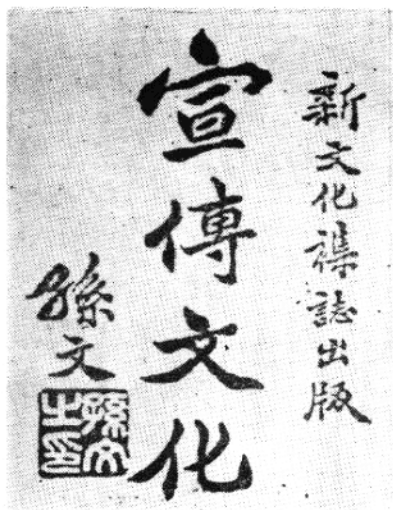 新文化襍誌出版
宣傳文化
孫文
孫文之印